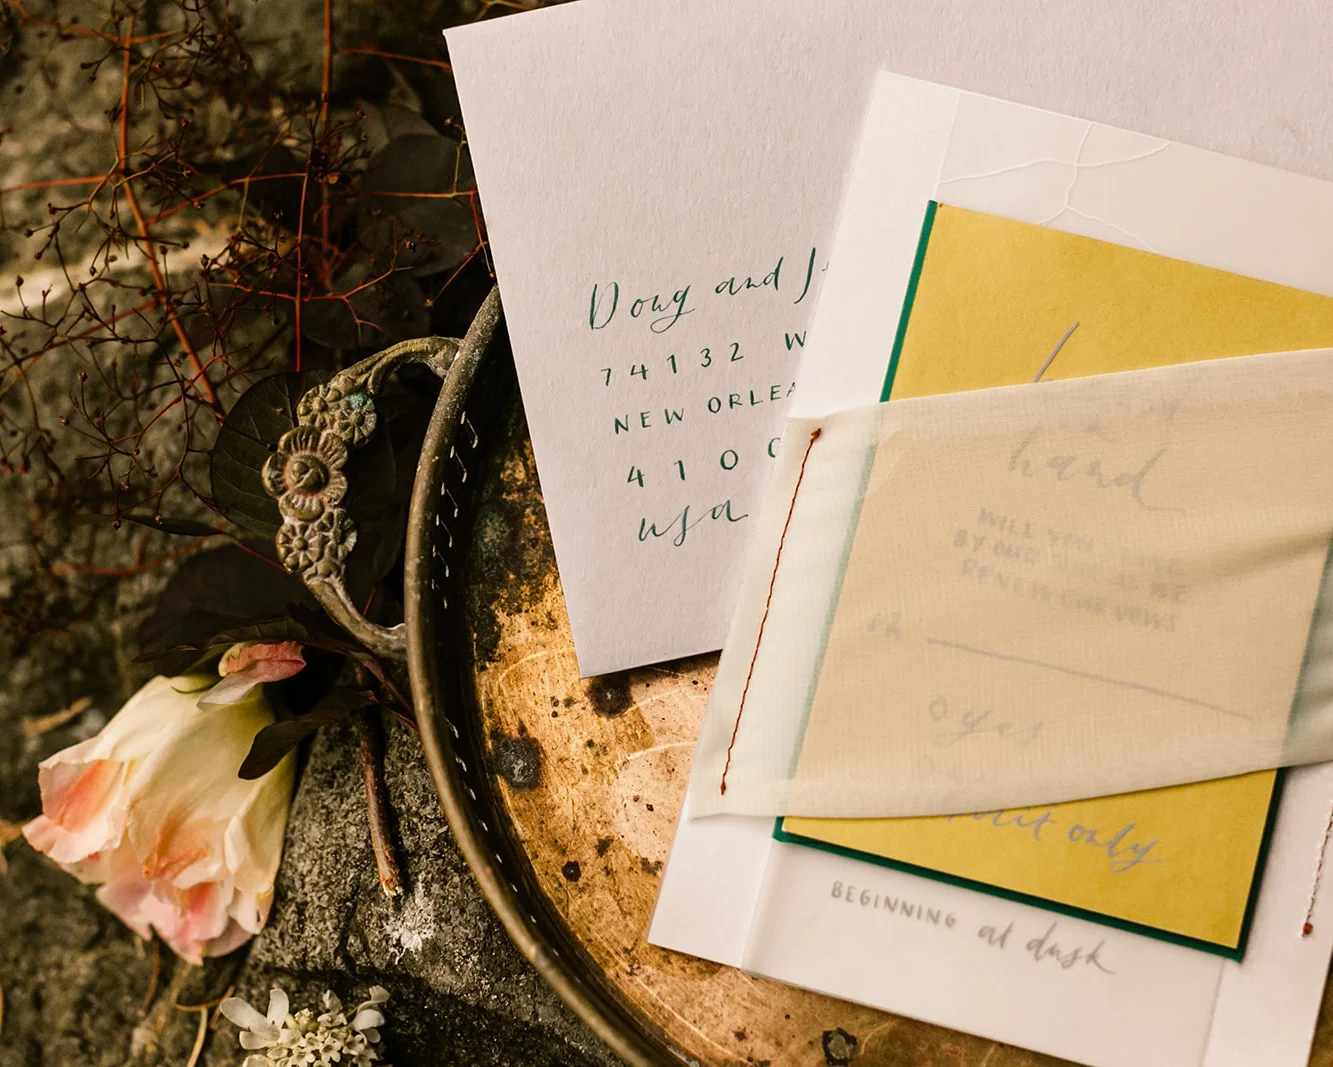 Doug and
74132 W
NEW ORLEA
4100
usa
hand
WILL YOU
BY OUR SIDE AS WE
RENEW OUR VOWS
o yes
only
BEGINNING at dusk